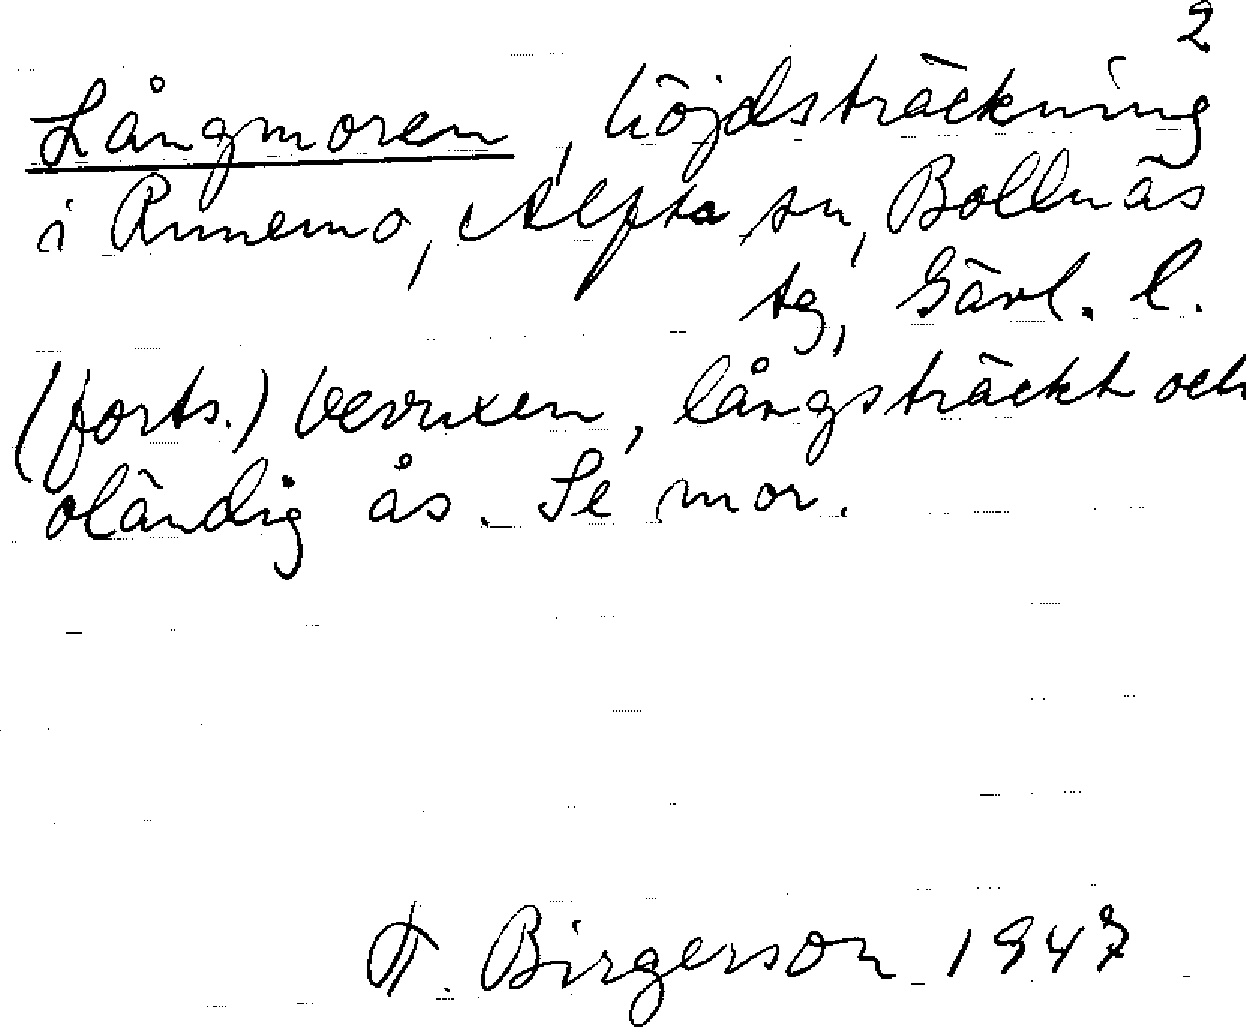 2
Långmoren, höjdsträckning
i Runemo, Alfta sn, Bollnäs
tg, Gävl. l.
(forts.) bevuxen, långsträckt och
oländig ås. Se mor.
Birgerson 1947